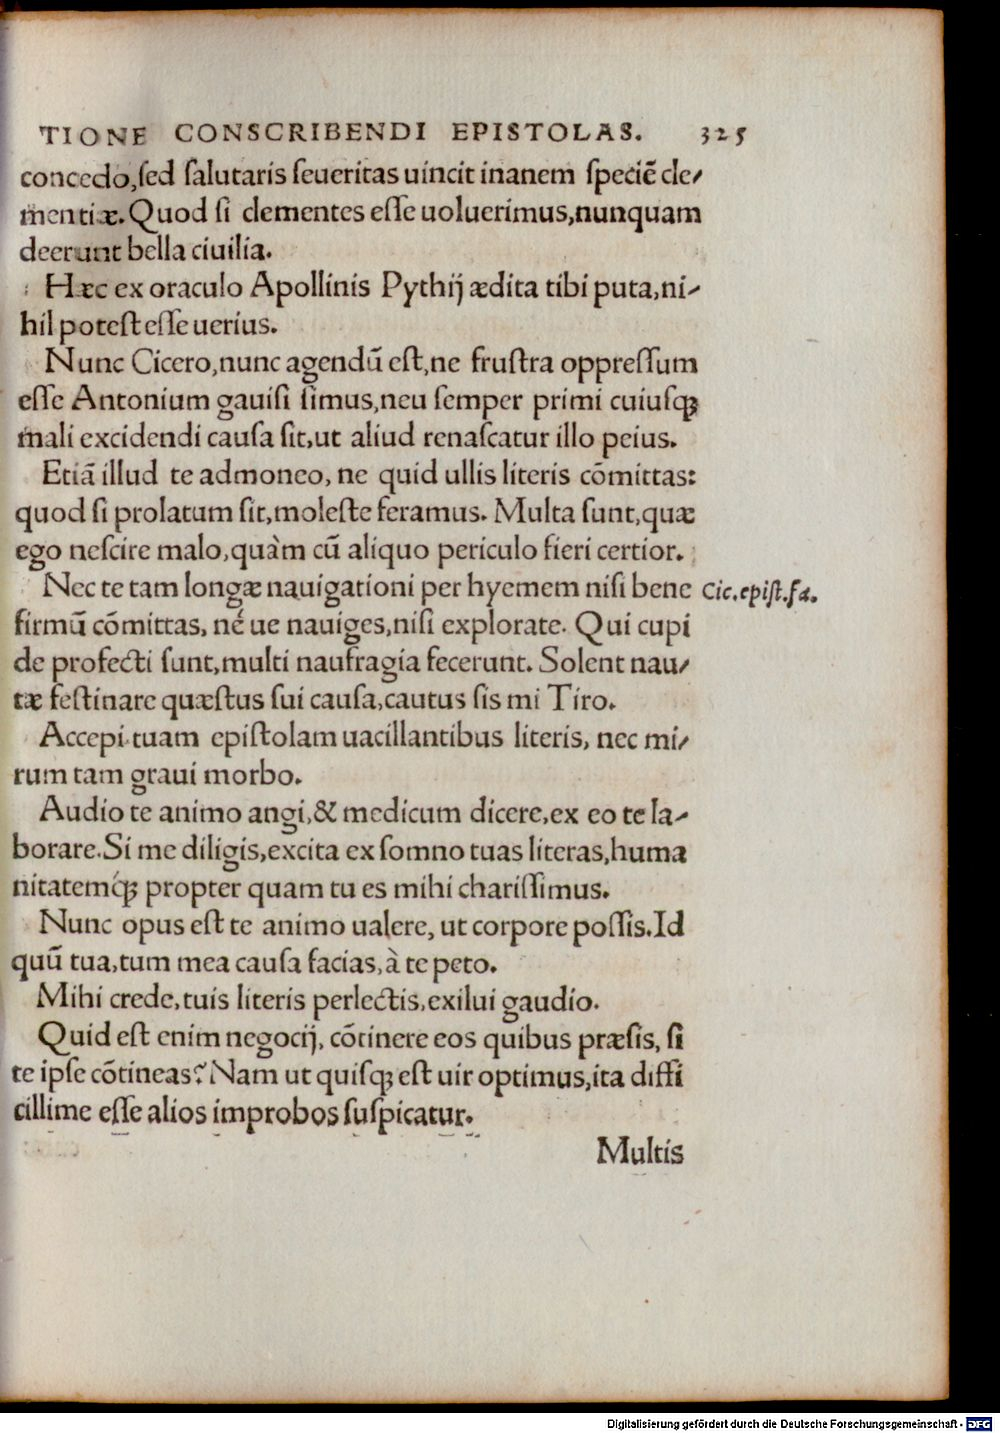 TIONE CONSCRIBENDI EPISTOLAS. 325
concedo,ſed ſalutaris ſeueritas uincit inanem ſpeciē cle/
mentiæ. Quod ſi clementes eſſe uoluerimus,nunquam
deerunt bella ciuilia.
Hæc ex oraculo Apollinis Pythij ædita tibi puta,ni/
hil poteſt eſſe uerius.
Nunc Cicero,nunc agendū eſt,ne fruſtra oppreſſum
eſſe Antonium gauiſi ſimus,neu ſemper primi cuiuſqꝫ
mali excidendi cauſa ſit,ut aliud renaſcatur illo peius.
Etiā illud te admoneo, ne quid ullis literis cōmittas:
quod ſi prolatum ſit,moleſte feramus. Multa ſunt,quæ
ego neſcire malo,quàm cū aliquo periculo fieri certior.
Nec te tam longæ nauigationi per hyemem niſi bene Cic.epiſt.fa.
firmū cōmittas, né ue nauiges,niſi explorate. Qui cupi
de profecti ſunt,multi naufragia fecerunt. Solent nau/
tæ feſtinare quæſtus ſui cauſa,cautus ſis mi Tiro.
Accepi tuam epiſtolam uacillantibus literis, nec mi/
rum tam graui morbo.
Audio te animo angi,& medicum dicere,ex eo te la/
borare.Si me diligis,excita ex ſomno tuas literas,huma
nitatemq́ꝫ propter quam tu es mihi chariſſimus.
Nunc opus eſt te animo ualere, ut corpore poſſis.Id
quū tua,tum mea cauſa facias,à te peto.
Mihi crede,tuis literis perlectis,exilui gaudio.
Quid eſt enim negocij, cōtinere eos quibus præſis, ſi
te ipſe cōtineas? Nam ut quiſqꝫ eſt uir optimus,ita diffi
cillime eſſe alios improbos ſuſpicatur.
Multis
Digitalisierung gefördert durch die Deutsche Forschungsgemeinschaft - DFG